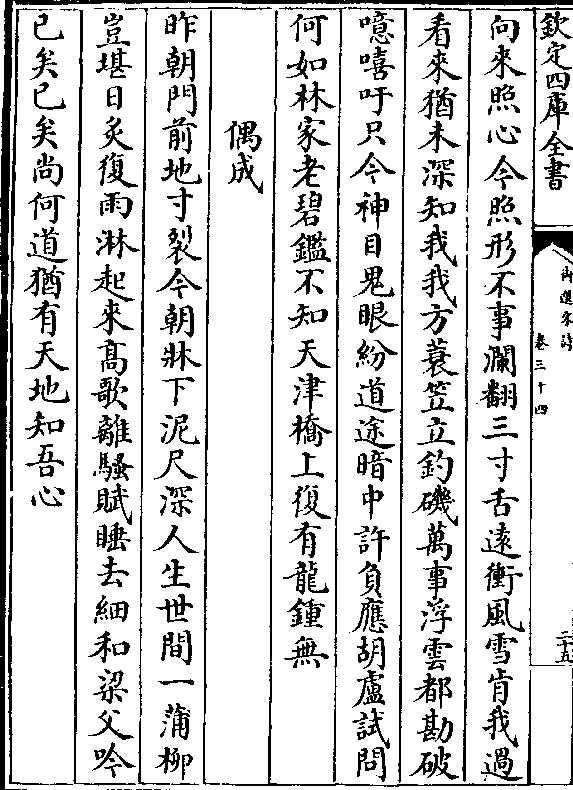 欽定四庫全書
御選宋詩
卷三十四
二十五
向來照心今照形不事瀾翻三寸舌遠衝風雪肯我過
看來猶未深知我我方蓑笠立釣磯萬事浮雲都勘破
噫嘻吁只今神目鬼眼紛道途暗中許負應胡盧試問
何如林家老碧鑑不知天津橋上復有龍鍾無
偶成
昨朝門前地寸裂今朝牀下泥尺深人生世間一蒲柳
豈堪日炙復雨淋起來高歌離騷賦睡去細和梁父吟
已矣已矣尚何道猶有天地知吾心